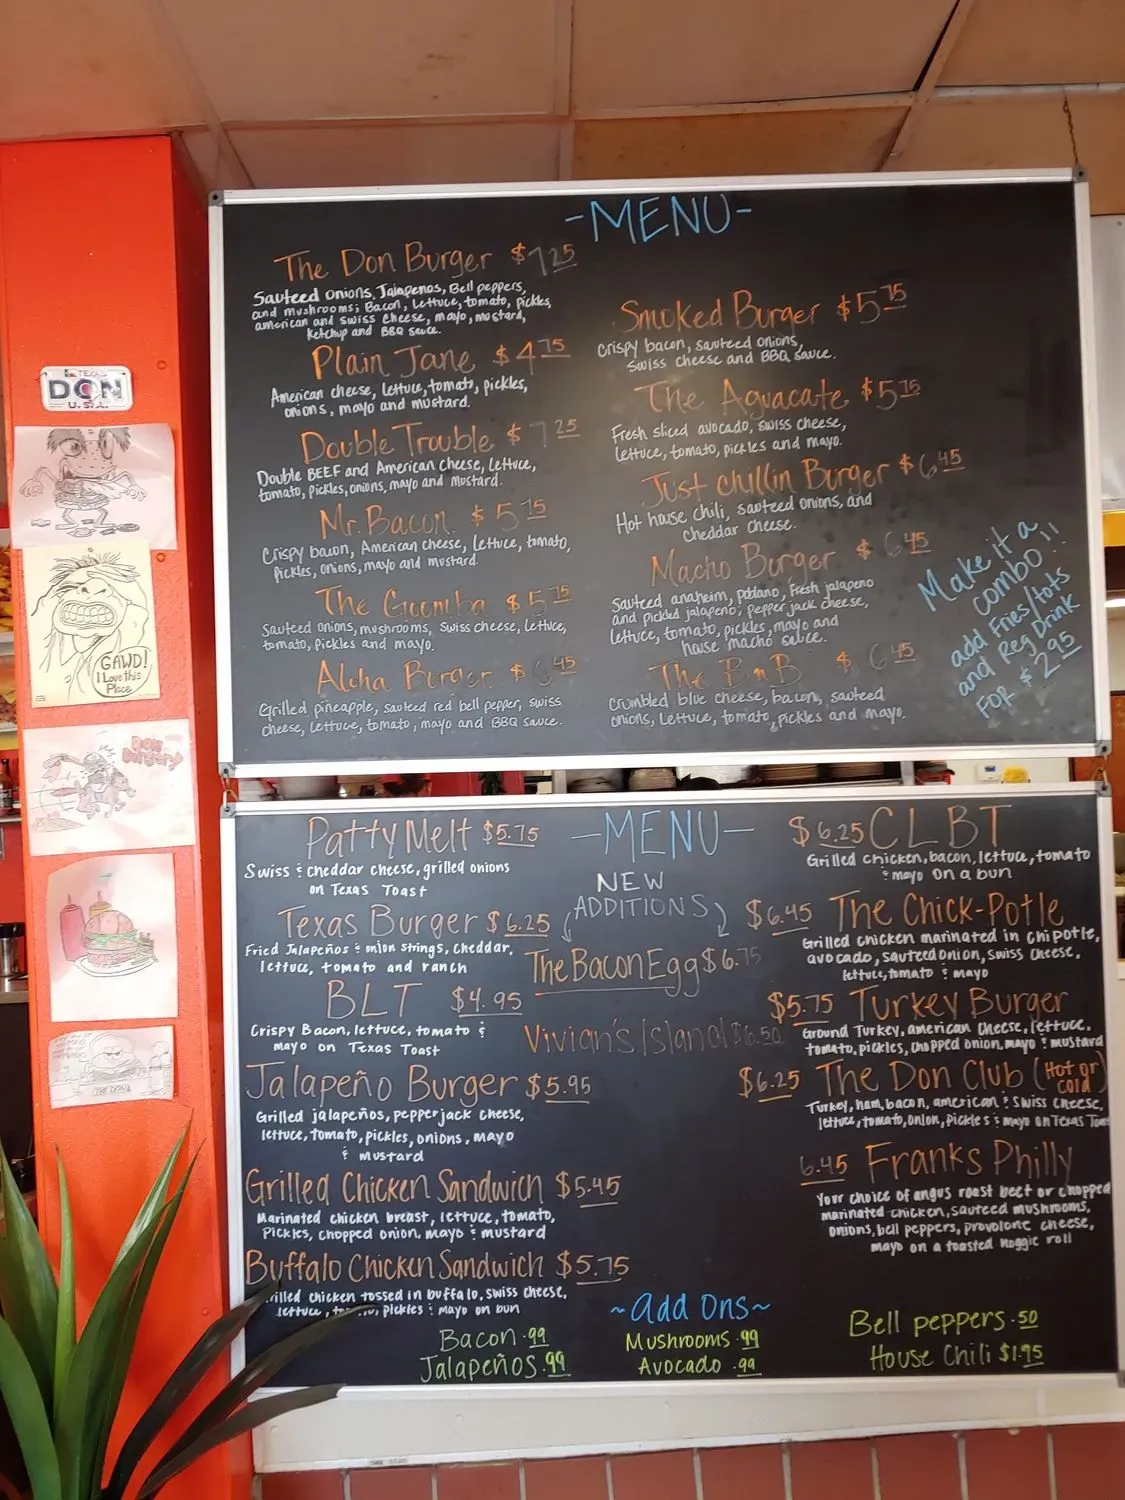 -MENU-
The Don Burger $7.25
Sauteed onions, Jalapenos, Bell peppers,
and mushrooms; Bacon, Lettuce, tomato, pickles,
american and swiss cheese, mayo, mustard,
ketchup and BBQ sauce.
Plain Jane $4.75
American cheese, lettuce, tomato, pickles,
onions, mayo and mustard.
Double Trouble $7.25
Double BEEF and American cheese, Lettuce,
tomato, pickles, onions, mayo and Mustard.
Mr. Bacon $5.75
Crispy bacon, American cheese, Lettuce, tomato,
Pickles, onions, mayo and mustard
The Goomba $5.75
Sauteed onions, mushrooms, swiss cheese, Lettuce,
tomato, Pickles and mayo.
Aloha Burger $6.45
Grilled pineapple, sauteed red bell pepper, swiss
cheese, lettuce, tomato, mayo and BBQ sauce.
Smoked Burger $5.75
Crispy bacon, sauteed onions,
Swiss cheese and BBQ sauce.
The Aguacate $5.75
Fresh sliced avocado, swiss cheese,
lettuce, tomato, pickles and mayo.
Just chillin Burger $6.45
Hot house chili, sauteed onions, and
cheddar cheese.
Macho Burger $6.45
Sauteed anaheim, poblano, Fresh jalapeno
and pickled jalapeno; pepper jack cheese,
lettuce, tomato, pickles, mayo and
house macho sauce.
The BnB $6.45
Crumbled blue cheese, bacon, sauteed
onions, Lettuce, tomato, Pickles and mayo.
Make it a
combo!!
add Fries/tots
and Reg Drink
FOR $2.95
TEXAS
DON
U.S.A.
GAWD!
I Love this
Place
DON
Burgery
THE DON
-MENU-
Patty Melt $5.75
Swiss & cheddar cheese, grilled onions
on Texas Toast
Texas Burger $6.25
Fried Jalapeños & onion strings, cheddar,
lettuce, tomato and ranch
BLT $4.95
Crispy Bacon, lettuce, tomato &
mayo on Texas Toast
Jalapeño Burger $5.95
Grilled jalapeños, pepperjack cheese,
lettuce, tomato, pickles, onions, mayo
& mustard
Grilled Chicken Sandwich $5.45
Marinated chicken breast, lettuce, tomato,
Pickles, chopped onion, mayo & mustard
Buffalo Chicken Sandwich $5.75
chicken tossed in buffalo, swiss cheese,
lettuce, pickles & mayo on bun
NEW
ADDITIONS
The Bacon Egg $6.75
Vivian's Island $6.50
$6.25 CLBT
Grilled chicken, bacon, lettuce, tomato
& mayo on a bun
$6.45 The Chick-Potle
Grilled chicken marinated in chipotle,
avocado, sauteed onion, swiss cheese,
lettuce, tomato & mayo
$5.75 Turkey Burger
Ground Turkey, american cheese, lettuce,
tomato, pickles, chopped onion, mayo & mustard
$6.25 The Don Club (Hot or
cold)
Turkey, ham, bacon, american & swiss cheese,
lettuce, tomato, onion, pickles & mayo on Texas
6.45 Franks Philly
Your choice of angus roast beef or chopped
marinated chicken, sauteed mushrooms,
onions, bell peppers, provolone cheese,
mayo on a toasted hoggie roll
~Add Ons~
Bacon .99
Jalapeños .99
Mushrooms .99
Avocado .99
Bell peppers .50
House Chili $1.95